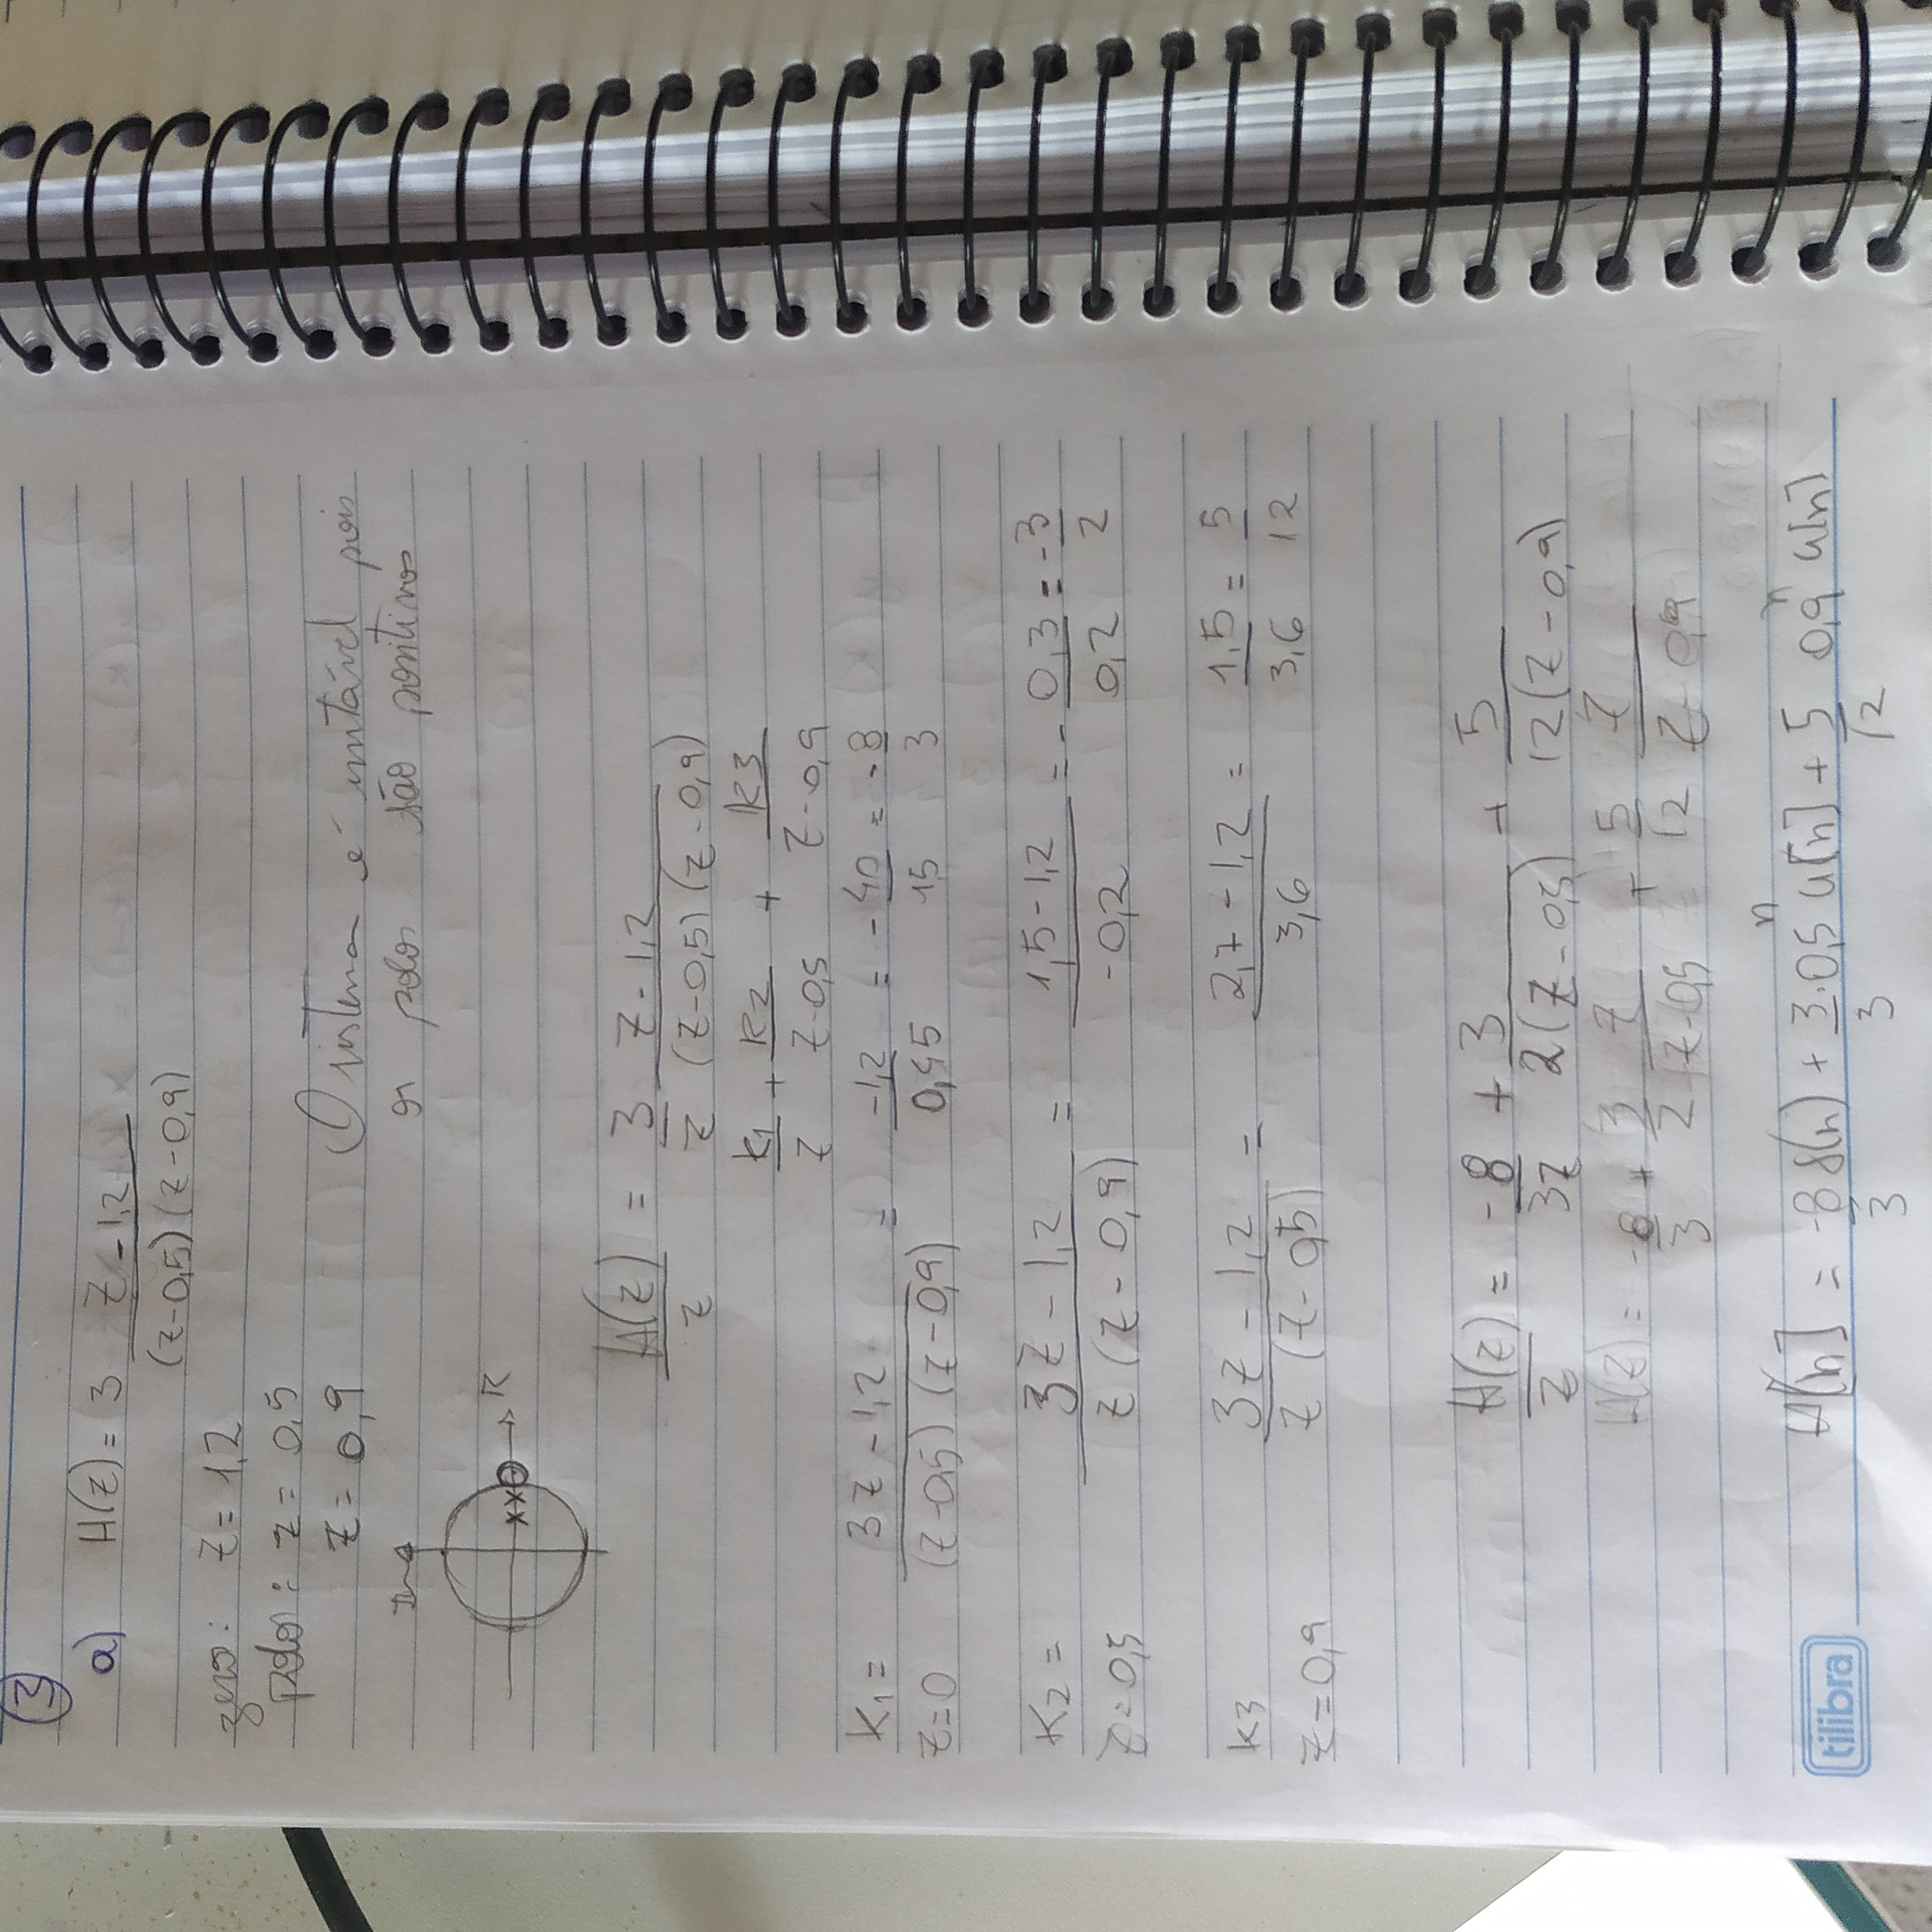 3
a) H(z) = 3 (z - 1,2) / ((z-0,5)(z-0,9))
zero: z = 1,2
polos: z = 0,5
z = 0,9
O sistema é instável pois
os polos são positivos
Img
R
H(z)/z = 3/z (z - 1,2)/((z-0,5)(z-0,9))
k1/z + k2/(z-0,5) + k3/(z-0,9)
K1 = (3z - 1,2)/((z-0,5)(z-0,9)) = -1,2/0,45 = -40/15 = -8/3
z=0
K2 = (3z - 1,2)/(z(z-0,9)) = (1,5-1,2)/(-0,2) = -0,3/0,2 = -3/2
z=0,5
k3 (3z - 1,2)/(z(z-0,5)) = (2,7-1,2)/3,6 = 1,5/3,6 = 5/12
z=0,9
H(z)/z = -8/3z + 3/(2(z-0,5)) + 5/(12(z-0,9))
H(z) = -8/3 + 3/2 z/(z-0,5) + 5/12 z/(z-0,9)
H[n] = -8/3 δ(n) + 3/3 · 0,5^n u[n] + 5/12 0,9^n u[n]
tilibra